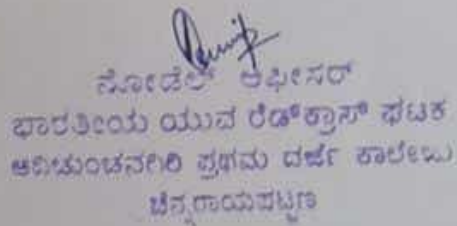 ನೋಡೆಲ್ ಆಫೀಸರ್
ಭಾರತೀಯ ಯುವ ರೆಡ್‌ಕ್ರಾಸ್ ಘಟಕ
ಆದಿಚುಂಚನಗಿರಿ ಪ್ರಥಮ ದರ್ಜೆ ಕಾಲೇಜು
ಚನ್ನರಾಯಪಟ್ಟಣ